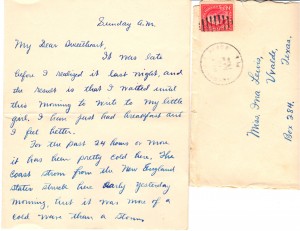 Sunday a.m.
My Dear Sweetheart,
It was late
before I realized it last night, and
the result is that I waited until
this morning to write to my little
girl. I have just had breakfast and
I feel better.
For the past 24 hours or more
it has been pretty cold here. The
coast storm from the New England
states struck here early yesterday
morning, but it was more of a
cold wave than a storm,
Miss Ina Lewis,
Uvalde,
Texas.
Box 284,